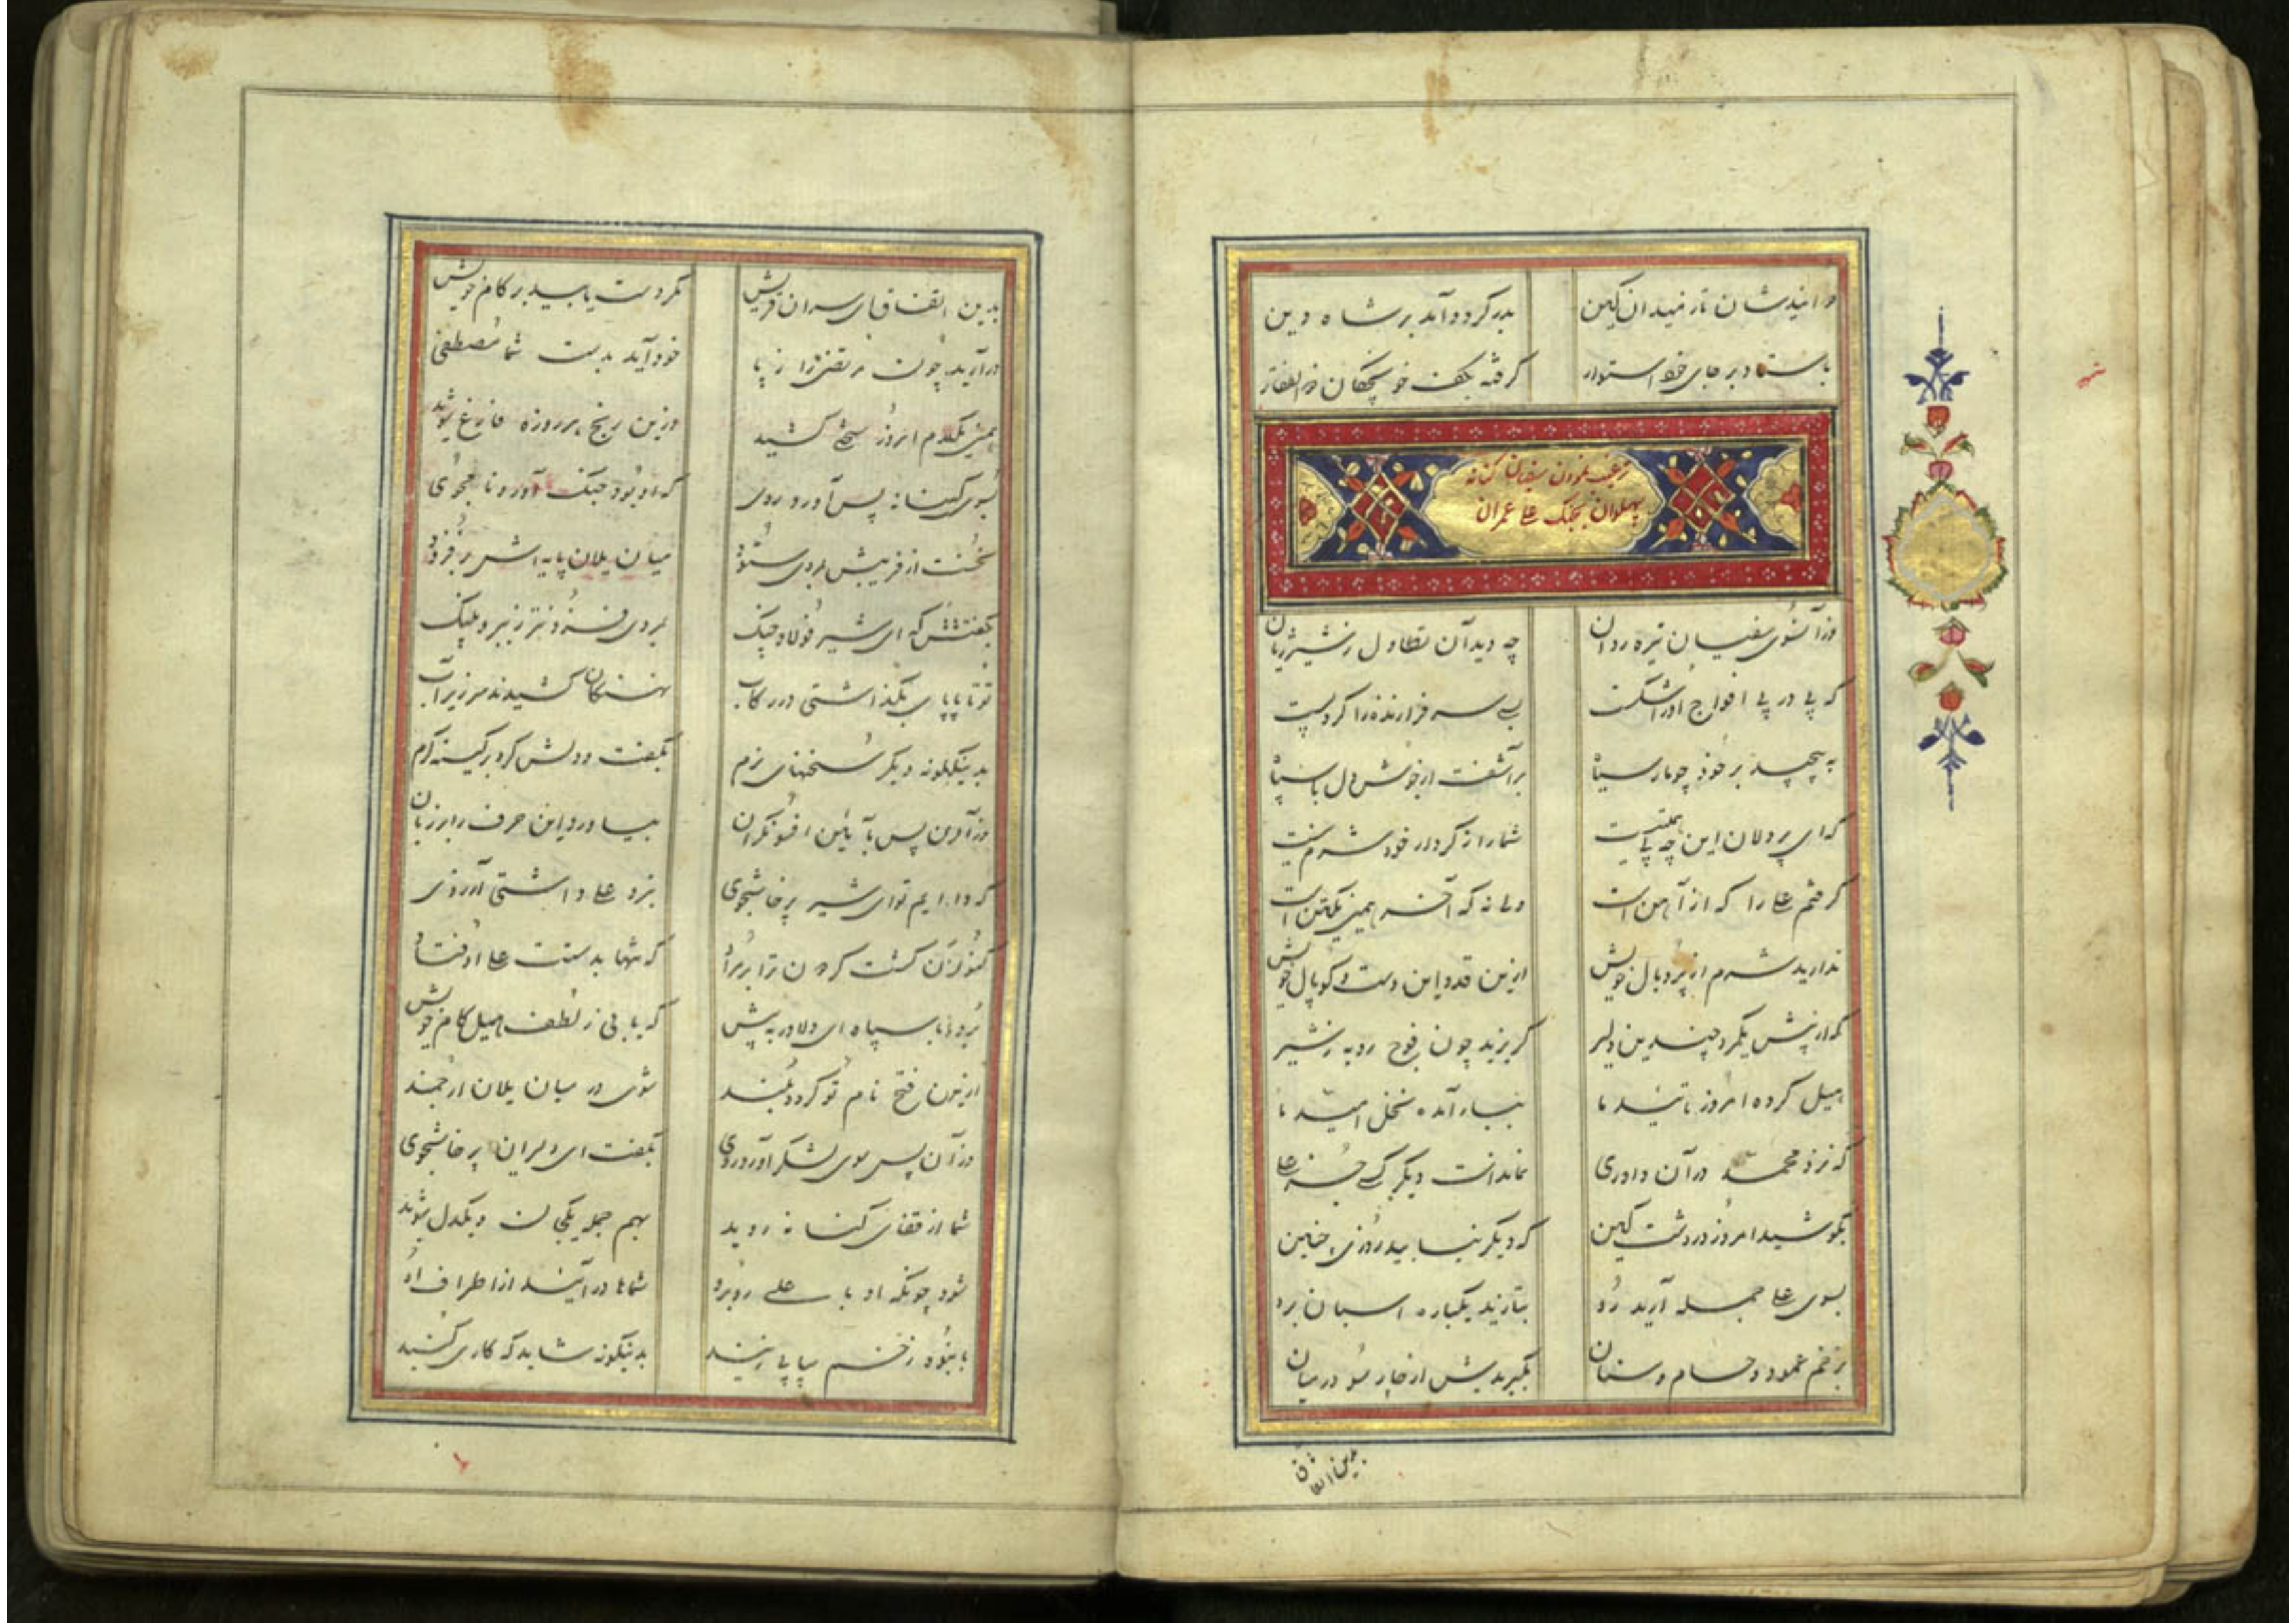 دوانیدشان تا ز میدان کین بدر کرد و آمد بر شاه دین
باستاد بر جای خود استوار گرفته بکف خونچکان ذوالفقار
ترغیب نمودن سفیان کنانه
پهلوان بجنک علی عمران
وز آنسوی سفیان تیره روان چه دید آن تطاول ز شیر ژیان
که پی در پی افواج او را شکست بسی سرفرازنده را کرد پست
به پیچید بر خود چو مار سیاه برآشفت از خوش دل با سپاه
که ای پردلان این چه بی همتیست شما را ز کردار خود شرم نیست
گرفتم علی را که از آهن است ولی نه که آخر همین یکتن است
ندارید شرم از پر و بال خویش ازین قد و این دست و کوپال خویش
که از پیش یکمرد چندین دلیر گریزید چون فوج روبه ز شیر
هبل کرده امروز تائید ما ببار آمده نخل امید ما
که نزد محمد در آن داوری نماندست دیگر کسی جز علی
بکوشید امروز در دشت کین که دیگر نیابید روزی چنین
بسوی علی جمله آرید رو بتازید یکباره اسبان برو
بزخم عمود و حسام و سنان بگیریدش از چار سو در میان
بدین اتفاق
بدین اتفاق ای سران قریش مگر دست یابید بر کام خویش
درآرید چون مرتضی را ز پا خود آید بدست شما مصطفی
همین یکدم امروز سختی کشید وزین رنج هر روزه فارغ شوید
بسوی کنانه پس آورد روی که او بود جنک آور و نامجوی
نخست از فریبش بمردی ستود میان یلان پایه اش برفزود
بگفتش که ای شیر فولاد چنک بمردی فزونتر ز ببر و پلنک
تو تا پای بگذاشتی در رکاب نهنگان کشیدند سر زیر آب
بدینگونه دیگر سخنهای نرم بگفت و دلش کرد بر کینه گرم
وز آن پس بآئین افسونگران بیاورد این حرف را بر زبان
که دایم تو ای شیر پرخاشجوی نبرد علی داشتی آرزوی
کنون زن گشت گردون ترا بر مراد که تنها بدستت علی اوفتاد
برو با سپاه ای دلاور به پیش که یابی ز لطف هبل کام خویش
ازین فتح نام تو گردد بلند شوی در میان یلان ارجمند
وز آن پس سوی لشکر آورد روی بگفت ای دلیران پرخاشجوی
شما از قفای کنانه روید بهم جمله یکجان و یکدل شوید
شود چونکه او با علی روبرو شما ها درآئید از اطراف او
بانبوه زخم پیاپی زنید بدینگونه شاید که کاری کنید